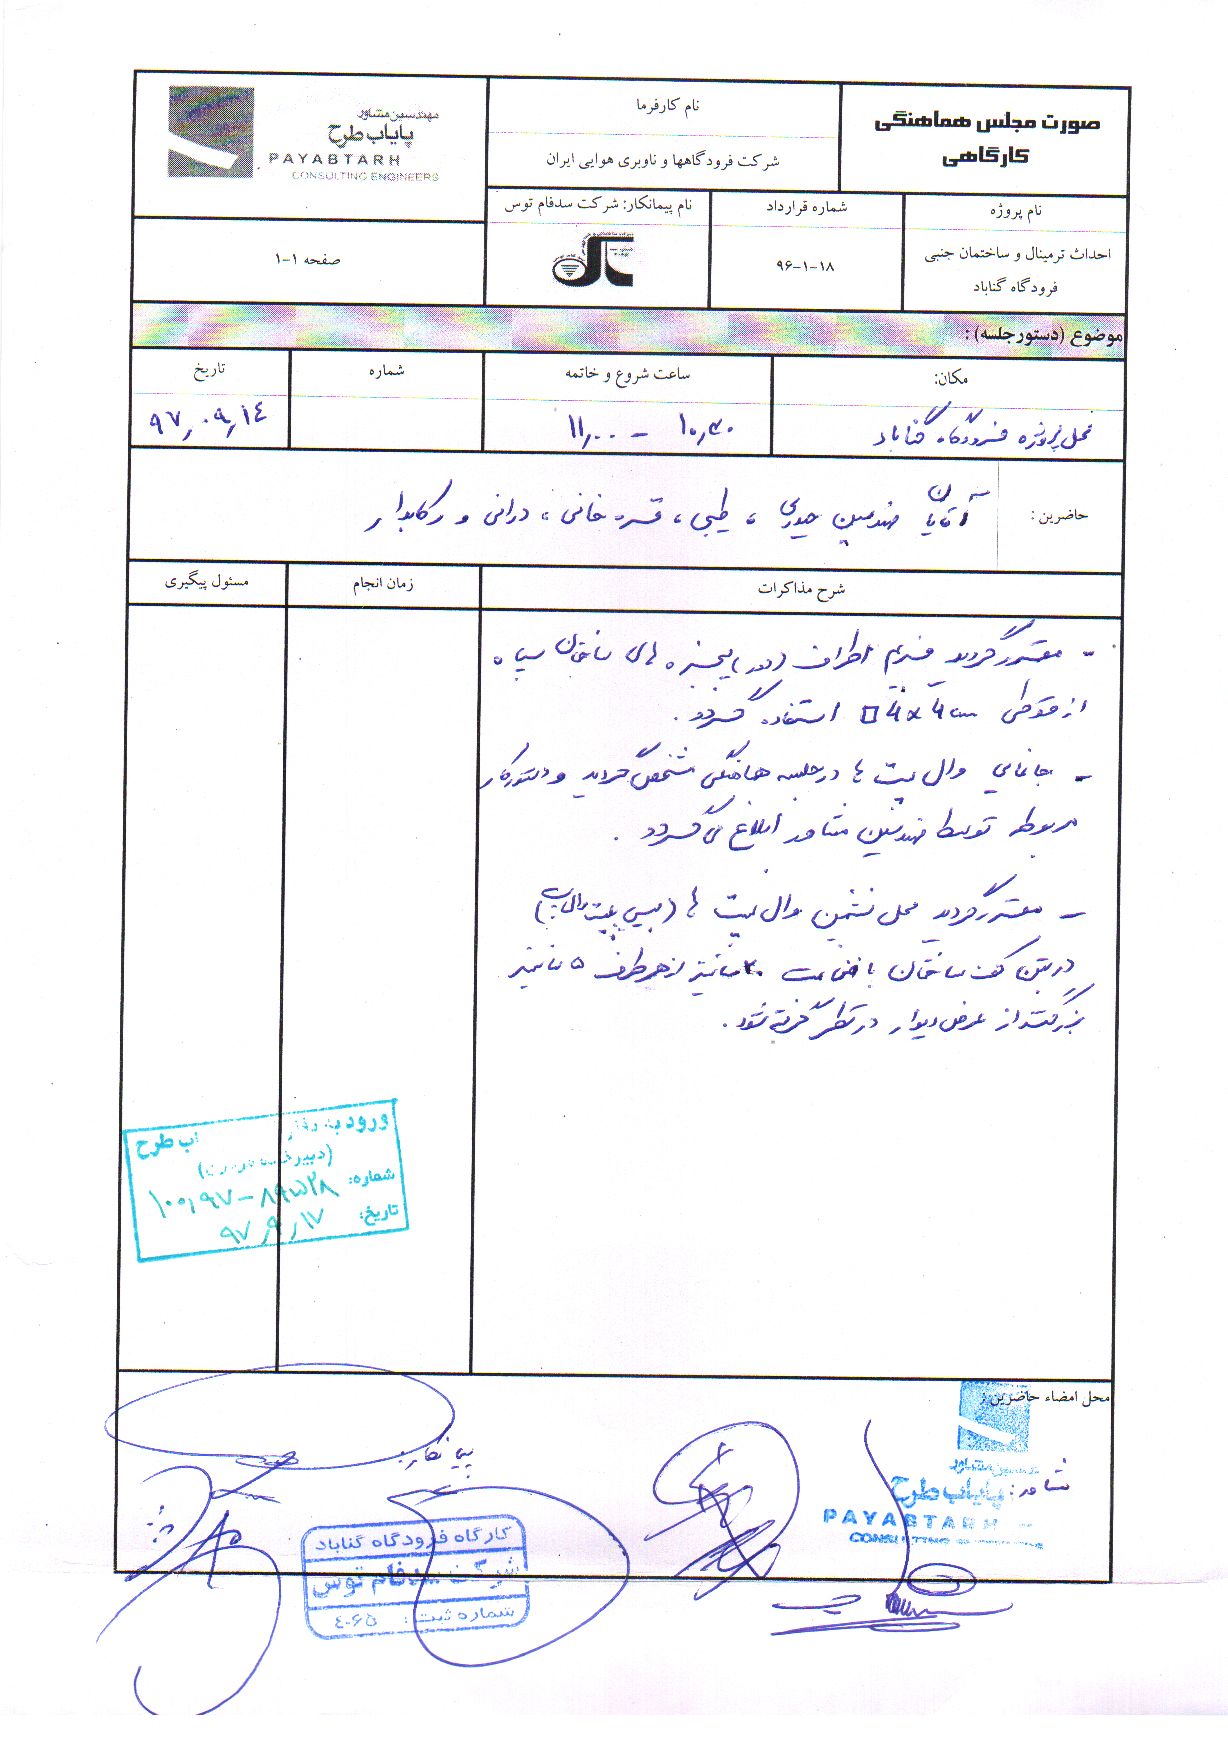 صورت مجلس هماهنگی
کارگاهی
نام کارفرما
شرکت فرودگاهها و ناوبری هوایی ایران
مهندسین مشاور
پایاب طرح
PAYABTARH
CONSULTING ENGINEERS
نام پروژه
احداث ترمینال و ساختمان جنبی
فرودگاه گناباد
شماره قرارداد
۹۶-۱-۱۸
نام پیمانکار: شرکت سدفام توس
صفحه ۱-۱
موضوع (دستورجلسه) :
مکان:
محل پروژه فرودگاه گناباد
ساعت شروع و خاتمه
۱۰,۳۰ - ۱۱,۰۰
شماره
تاریخ
۹۷,۰۹,۱۴
حاضرین :
آقایان مهندسین حیدری ، طیبی ، قره خانی ، درانی و رکابدار
شرح مذاکرات
زمان انجام
مسئول پیگیری
- مقرر گردید فریم اطراف (دور) پنجره های ساختمان سیاه
از قوطی 4x4 cm استفاده گردد .
- جانمایی وال پست ها در جلسه هماهنگی مشخص گردید و دستورکار
مربوطه توسط مهندسین مشاور ابلاغ می گردد .
- مقرر گردید محل نشیمن وال پست ها (بیس پلیت وال پست)
در بتن کف ساختمان با ضخامت ۲۰ سانتیمتر از هر طرف ۵ سانتیمتر
بزرگتر از عرض دیوار در نظر گرفته شود .
ورود به دفتر اب طرح
شماره: ۱۰۰,۹۷-۸۹۵۲۸
تاریخ: ۹۷,۹,۱۷
محل امضاء حاضرین :
مشاور :
مهندسین مشاور
پایاب طرح
PAYABTARH
CONSULTING
پیمانکار :
کارگاه فرودگاه گناباد
شرکت سدفام توس
شماره ثبت : ۴۰۶۵